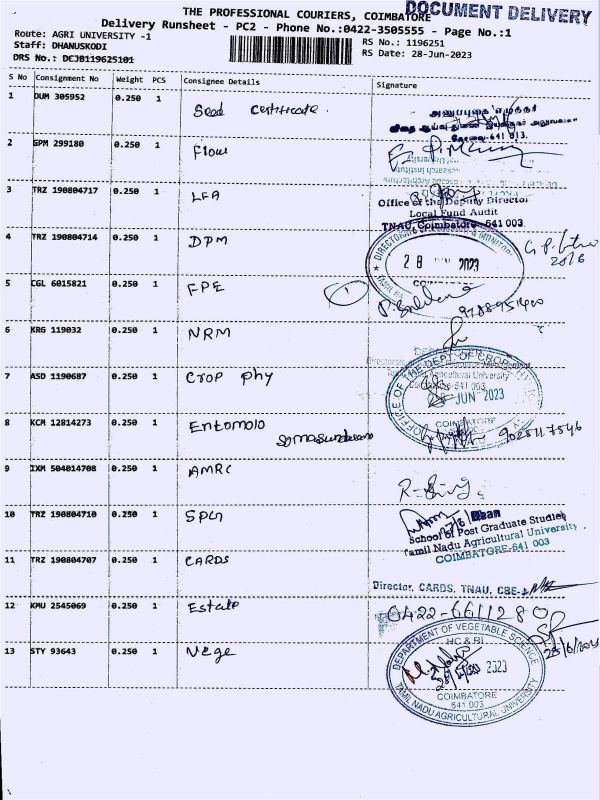 DOCUMENT DELIVERY
THE PROFESSIONAL COURIERS, COIMBATORE
Delivery Runsheet - PC2 - Phone No.:0422-3505555 - Page No.:1
Route: AGRI UNIVERSITY -1
Staff: DHANUSKODI
DRS No.: DCJB119625101
RS No.: 1196251
RS Date: 28-Jun-2023
S No Consignment No Weight PCS Consignee Details Signature
1 DUM 305952 0.250 1 Seed certificate
அனுப்புகை எழுத்தர்
கோவை-641 013.
2 GPM 299180 0.250 1 Flow
3 TRZ 190804717 0.250 1 LFA
Office of the Deputy Director
Local Fund Audit
TNAU, Coimbatore-641 003
4 TRZ 190804714 0.250 1 DPM
28 2023
5 CGL 6015821 0.250 1 FPE
6 KRG 119032 0.250 1 NRM
7 ASD 1190687 0.250 1 Crop phy
OFFICE OF THE DEPT OF CROP
JUN 2023
COIMBATORE
8 KCM 12814273 0.250 1 Entomolo
9025117546
9 IXM 504014708 0.250 1 AMRC
10 TRZ 190804710 0.250 1 SPG
Dean
School of Post Graduate Studies
Tamil Nadu Agricultural University
COIMBATORE-641 003
11 TRZ 190804707 0.250 1 CARDS
Director, CARDS, TNAU, CBE-
12 KMU 2545069 0.250 1 Estate
0422-6611280
13 STY 93643 0.250 1 Vege
DEPARTMENT OF VEGETABLE SCIENCE
HC & RI
2023
COIMBATORE
641 003
TAMIL NADU AGRICULTURAL UNIVERSITY